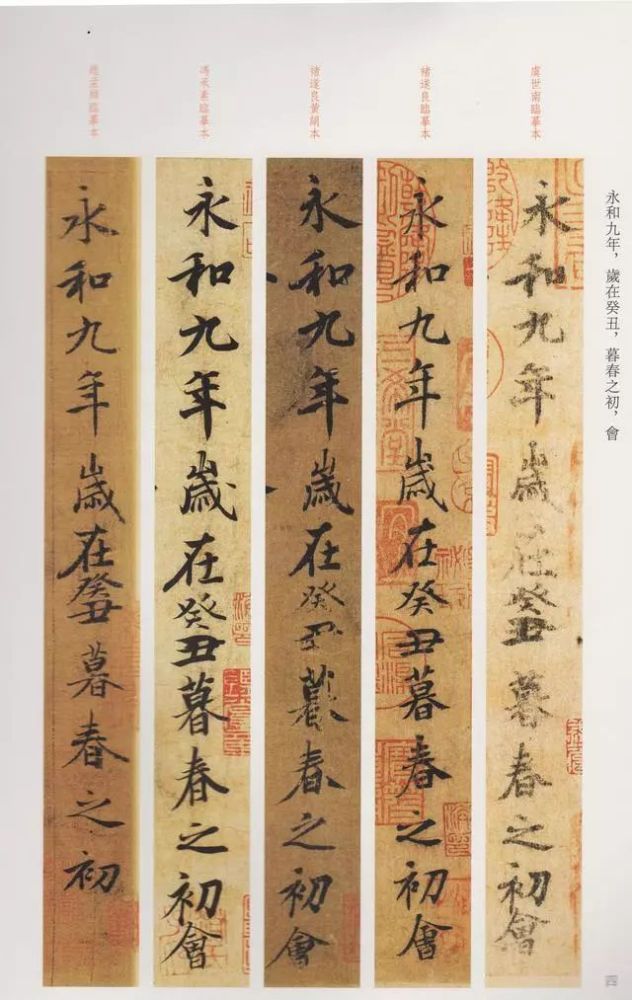 永和九年，歲在癸丑，暮春之初，會
虞世南臨摹本
永和九年歲在癸丑暮春之初會
褚遂良臨摹本
永和九年歲在癸丑暮春之初會
褚遂良黄絹本
永和九年歲在癸丑暮春之初會
馮承素臨摹本
永和九年歲在癸丑暮春之初會
趙孟頫臨摹本
永和九年歲在癸丑暮春之初
四